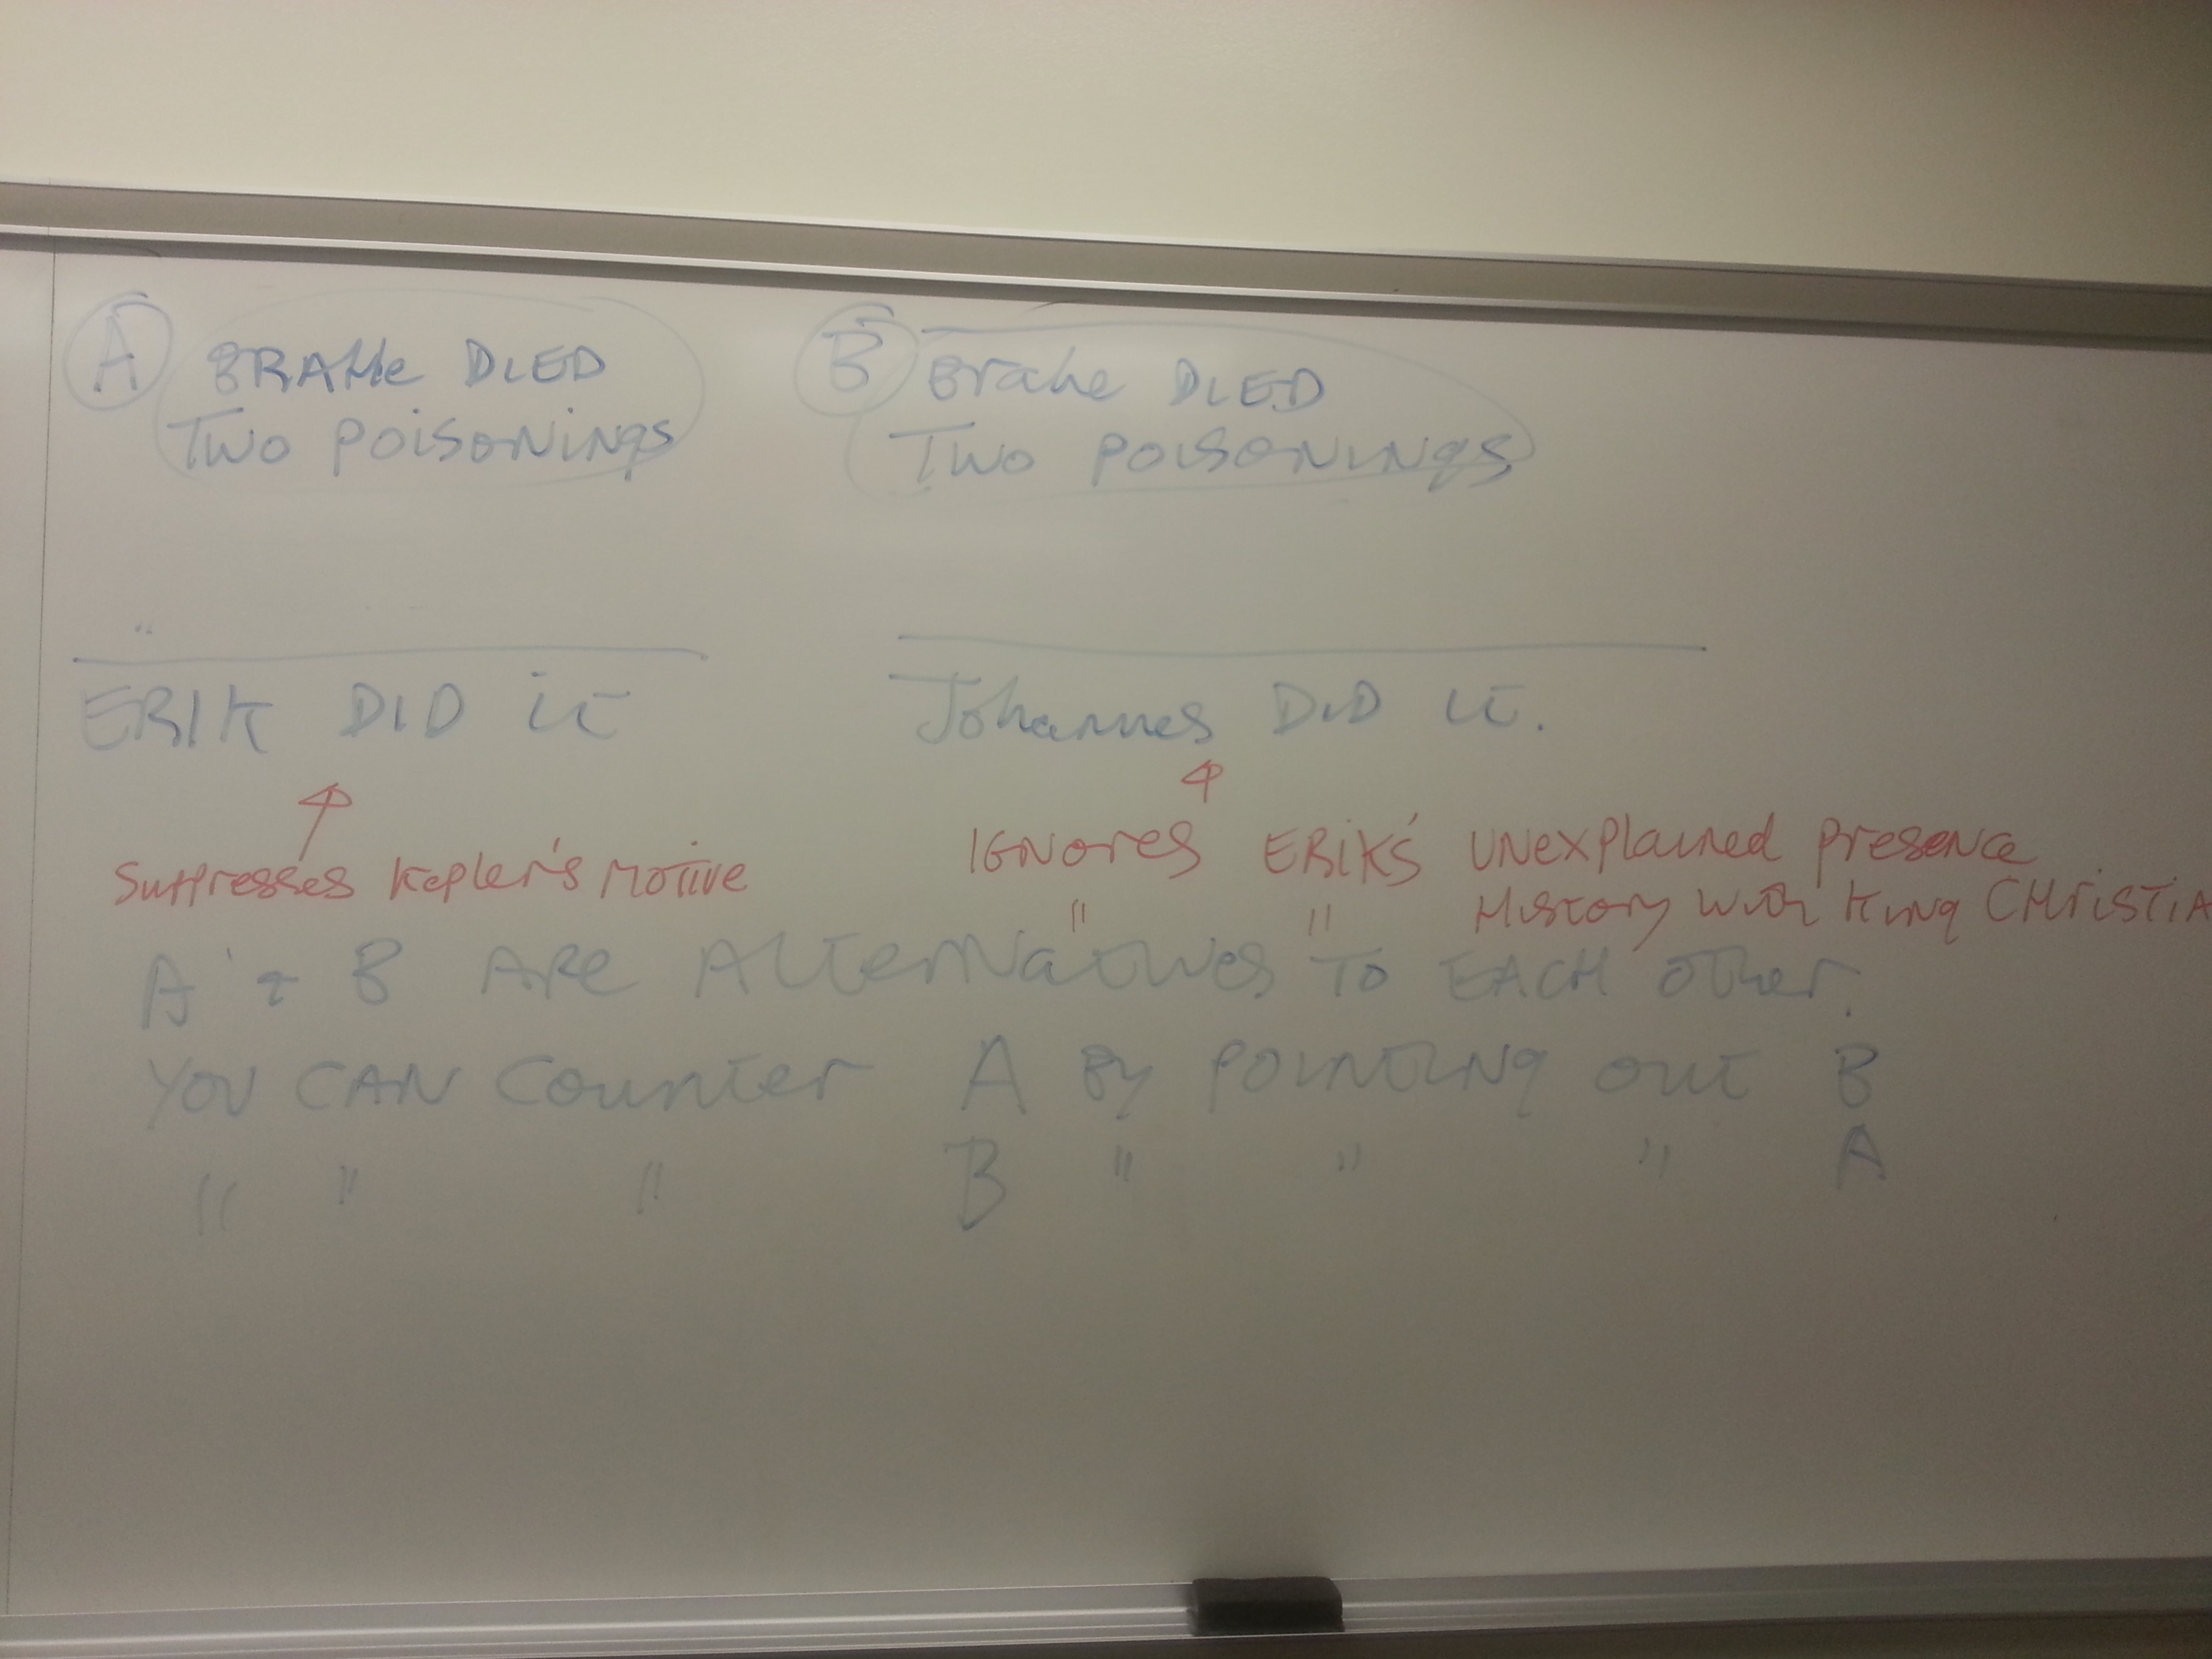 A BRAHe DIED
Two POISONINgS
B Brahe DIED
Two POISONINgS
"
ERIK DID it
Johannes DID it.
Suppresses Kepler's Motive
IGNores ERIK'S UNexplained presence
" " History with King CHristia
A + B Are Alternatives To EACH other.
YOU CAN Counter A By pointing out B
" " " B " " " A